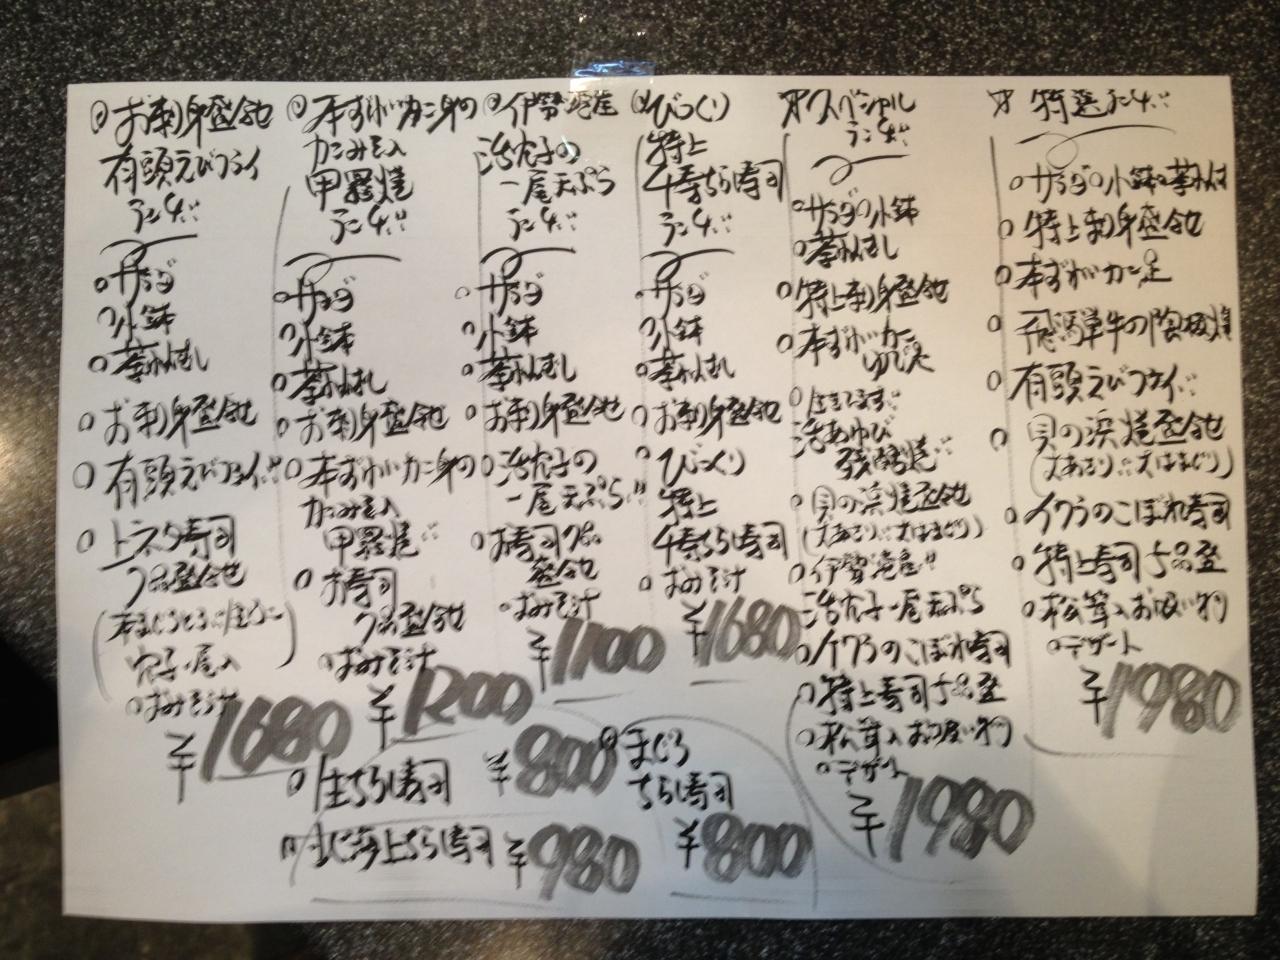 お刺身盛合
有頭えびフライ
ランチ!!
サラダ
小鉢
茶わんむし
お刺身盛合
有頭えびフライ!!
トネタ寿司
7品盛合
穴子一尾入
おみそ汁
¥1680
本ずわいカニ身の
カニみそ入
甲羅焼
ランチ!!
サラダ
小鉢
茶わんむし
お刺身盛合
本ずわいカニ身の
カニみそ入
甲羅焼!!
お寿司
7品盛合
おみそ汁
¥1200
伊勢湾産
活穴子の
一尾天ぷら
ランチ!!
サラダ
小鉢
茶わんむし
お刺身盛合
活穴子の
一尾天ぷら!!
お寿司7品
盛合
おみそ汁
¥1100
びっくり
特上
千寿ちらし寿司
ランチ!!
サラダ
小鉢
茶わんむし
お刺身盛合
びっくり
特上
千寿ちらし寿司
おみそ汁
¥1680
スペシャル
ランチ!!
サラダの小鉢
茶わんむし
特上刺身盛合
本ずわいカニ
生きてます!!
活あわび
残酷焼!!
貝の浜焼盛合
(大あさり!!大はまぐり)
伊勢湾産!!
活穴子一尾天ぷら
イクラのこぼれ寿司
特上寿司5品盛
松茸入お吸い物
デザート
¥1980
特選ランチ!!
サラダの小鉢と茶わんむし
特上刺身盛合
本ずわいカニ足
飛騨牛の陶板焼
有頭えびフライ!!
貝の浜焼盛合
(大あさり!!大はまぐり)
イクラのこぼれ寿司
特上寿司5品盛
松茸入お吸い物
デザート
¥1980
生ちらし寿司
¥800
北海上ちらし寿司
¥980
まぐろ
ちらし寿司
¥800